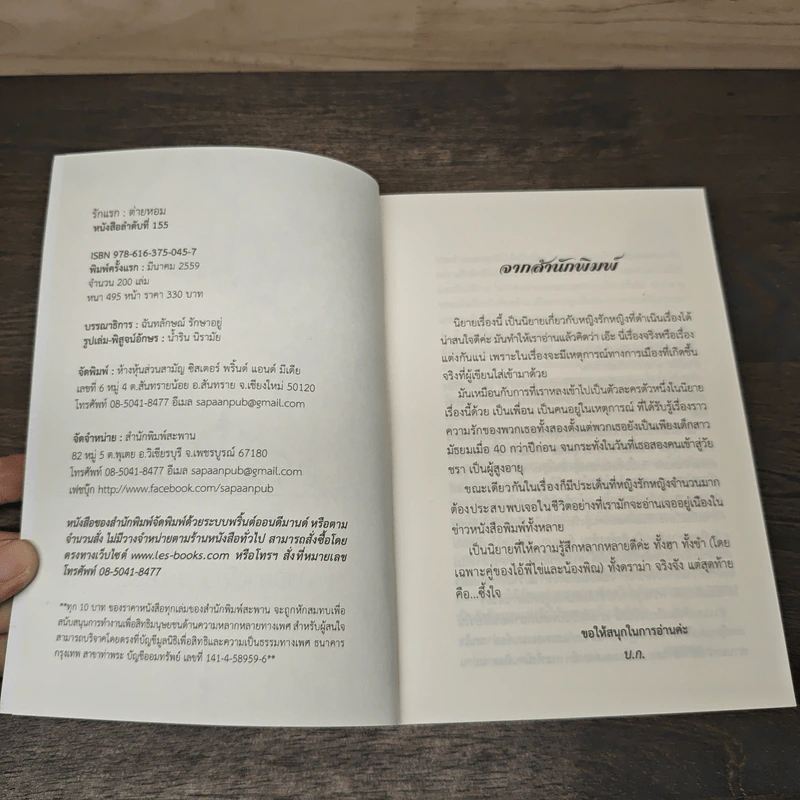 รักแรก : ต่ายหอม
หนังสือลำดับที่ 155
ISBN 978-616-375-045-7
พิมพ์ครั้งแรก : มีนาคม 2559
จำนวน 200 เล่ม
หนา 495 หน้า ราคา 330 บาท
บรรณาธิการ : ฉันทลักษณ์ รักษาอยู่
รูปเล่ม-พิสูจน์อักษร : น้ำริน นิรามัย
จัดพิมพ์ : ห้างหุ้นส่วนสามัญ ซิสเตอร์ พริ้นต์ แอนด์ มีเดีย
เลขที่ 6 หมู่ 4 ต.สันทรายน้อย อ.สันทราย จ.เชียงใหม่ 50120
โทรศัพท์ 08-5041-8477 อีเมล sapaanpub@gmail.com
จัดจำหน่าย : สำนักพิมพ์สะพาน
82 หมู่ 5 ต.พุเตย อ.วิเชียรบุรี จ.เพชรบูรณ์ 67180
โทรศัพท์ 08-5041-8477 อีเมล sapaanpub@gmail.com
เฟซบุ๊ก http://www.facebook.com/sapaanpub
หนังสือของสำนักพิมพ์จัดพิมพ์ด้วยระบบพริ้นต์ออนดีมานด์ หรือตาม
จำนวนสั่ง ไม่มีวางจำหน่ายตามร้านหนังสือทั่วไป สามารถสั่งซื้อโดย
ตรงทางเว็บไซต์ www.les-books.com หรือโทรฯ สั่งที่หมายเลข
โทรศัพท์ 08-5041-8477
**ทุก 10 บาท ของราคาหนังสือทุกเล่มของสำนักพิมพ์สะพาน จะถูกหักสมทบเพื่อ
สนับสนุนการทำงานเพื่อสิทธิมนุษยชนด้านความหลากหลายทางเพศ สำหรับผู้สนใจ
สามารถบริจาคโดยตรงที่บัญชีมูลนิธิเพื่อสิทธิและความเป็นธรรมทางเพศ ธนาคาร
กรุงเทพ สาขาท่าพระ บัญชีออมทรัพย์ เลขที่ 141-4-58959-6**
จากสำนักพิมพ์
นิยายเรื่องนี้ เป็นนิยายเกี่ยวกับหญิงรักหญิงที่ดำเนินเรื่องได้
น่าสนใจดีค่ะ มันทำให้เราอ่านแล้วคิดว่า เอ๊ะ นี่เรื่องจริงหรือเรื่อง
แต่งกันแน่ เพราะในเรื่องจะมีเหตุการณ์ทางการเมืองที่เกิดขึ้น
จริงที่ผู้เขียนใส่เข้ามาด้วย
มันเหมือนกับการที่เราหลงเข้าไปเป็นตัวละครตัวหนึ่งในนิยาย
เรื่องนี้ด้วย เป็นเพื่อน เป็นคนอยู่ในเหตุการณ์ ที่ได้รับรู้เรื่องราว
ความรักของพวกเธอทั้งสองตั้งแต่พวกเธอยังเป็นเพียงเด็กสาว
มัธยมเมื่อ 40 กว่าปีก่อน จนกระทั่งในวันที่เธอสองคนเข้าสู่วัย
ชรา เป็นผู้สูงอายุ
ขณะเดียวกันในเรื่องก็มีประเด็นที่หญิงรักหญิงจำนวนมาก
ต้องประสบพบเจอในชีวิตอย่างที่เรามักจะอ่านเจออยู่เนืองใน
ข่าวหนังสือพิมพ์ทั้งหลาย
เป็นนิยายที่ให้ความรู้สึกหลากหลายดีค่ะ ทั้งฮา ทั้งขำ (โดย
เฉพาะคู่ของไอ้พี่ไข่และน้องพิณ) ทั้งดราม่า จริงจัง แต่สุดท้าย
คือ...ซึ้งใจ
ขอให้สนุกในการอ่านค่ะ
บ.ก.